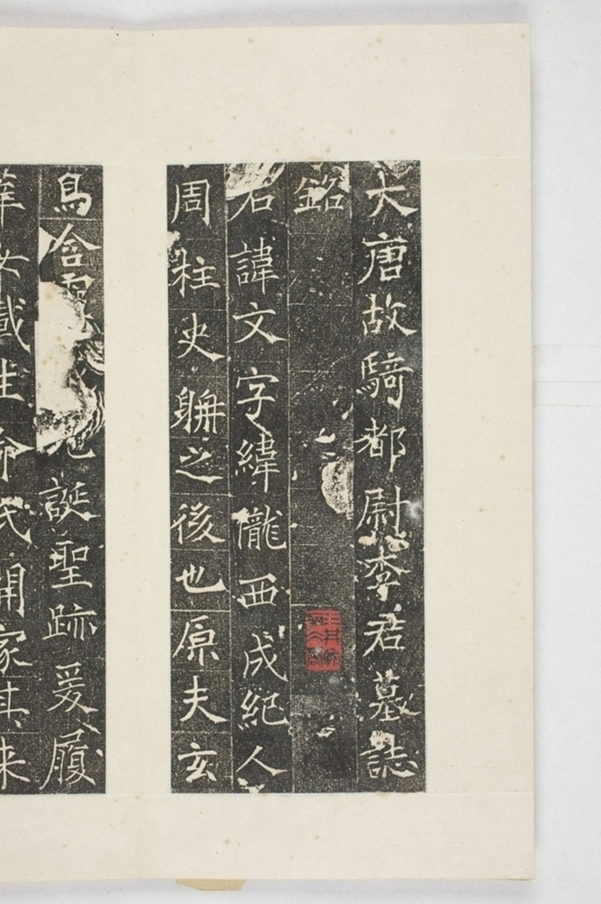 大唐故騎都尉李君墓誌
銘
君諱文字緯隴西成紀人
周柱史聃之後也原夫玄
鳥含誕聖跡爰履
女載生命氏開家其来